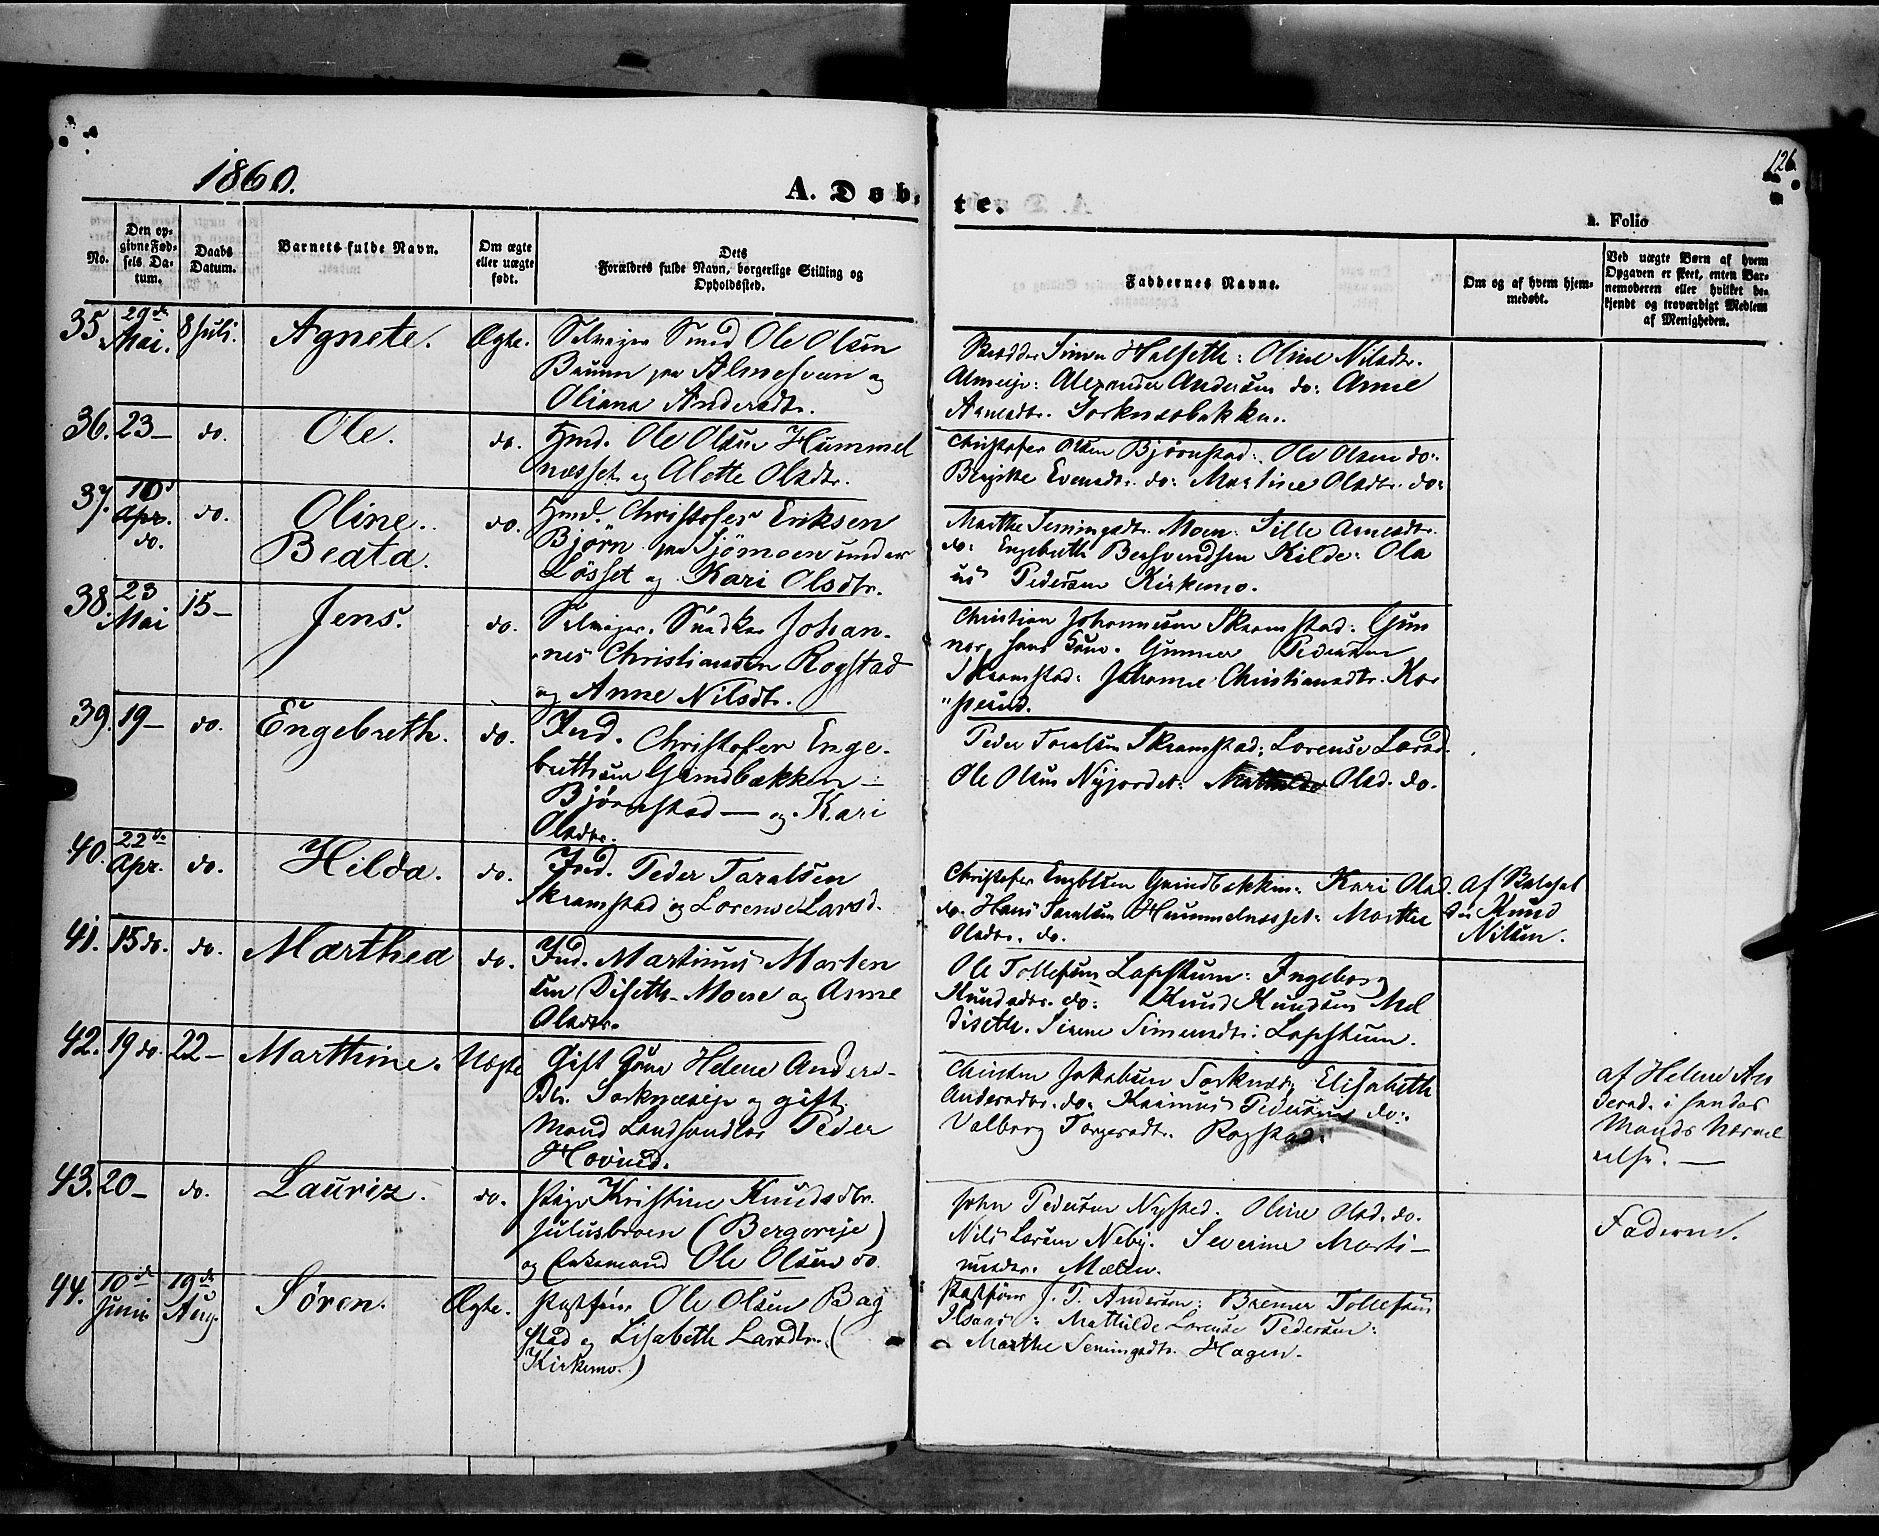 1860.
A. Døb-
te.
126
a. Folio
No.
Den op-
givne Fød-
sels Da-
tum.
Daabs
Datum.
Barnets fulde Navn.
Om ægte
eller uægte
født.
Dets
Forældres fulde Navn, borgerlige Stilling og
Opholdssted.
Faddernes Navne.
Om og af hvem hjem-
medøbt.
Ved uægte Børn af hvem
Opgaven er skeet, enten Bar-
nemoderen eller hvilket be-
kjendt og troværdigt Medlem
af Menigheden.
35. 29de Mai. 8 Juli. Agnete. Ægte.
Selveier Smed Ole Olsen
paa Almesvan og
Oliana Andersdtr.
Simen Halseth: Oline Nilsdtr.
Almeje: Alexander Andersen do: Anne
Arnesdtr. Sorknesbakken.
36. 23- do. Ole. do.
Hmd. Ole Olsen Hummel
næsset og Alette Olsdtr.
Christofer Olsen Bjørnstad: Ole Olsen do:
Birgitte Evensdtr. do: Martine Olsdtr. do:
37. 10d Apr. do. do. Oline
Beata. do.
Hmd. Christofer Eriksen
Bjørn paa Sjømoen under
Løsset og Kari Olsdtr.
Marthe Semingsdtr. Moen: Sille Arnesdtr.
do: Engebreth Bersvendsen Kilde: Ola
us Pedersen Kirkemo.
38. 23 Mai 15- Jens. do.
Selveier. Snedker Johan-
nes Christiansen Rogstad
og Anne Nilsdtr.
Christian Johannesen Skramstad: Gun
nor hans Kone. Gunner Pedersen
Skramstad: Johanne Christiansdtr. Kor
"
39. 19- do. Engebreth. do.
Ind. Christofer Enge-
brethsen Grindbækken -
Bjørnstad - og Kari
Olsdtr.
Peder Taralsen Skramstad: Lorense Larsd.
Ole Olsen Nyjordet: Mathilde Olsd. do.
40. 22de Apr. do. Hilda. do.
Ind. Peder Taralsen
Skramstad og Lorense Larsd.
Christofer Engebtsen Grindbækken: Kari Olsd.
do. Hans Taralsen Hummelnæsset: Marthe
Olsdtr. do.
Af
Knud
Nilsen.
41. 15 do. do. Marthea do.
Ind. Martinus Morten
sen Diseth-Moen og Anne
Olsdtr.
Ole Tollefsen Lapstuen: Ingeborg
Knudsdtr. do: Knud Knudsen Mel
diseth. Sirene Simensdtr: Lapstuen.
42. 19 do. 22- Marthine. Uægte
Gift Kone Helene Anders-
Dtr. Sorknæseje og gift
Mand Landhandler Peder
Hovind.
Christen Jakobsen Sorknæs; Elisabeth
Andersdtr. do: Rasmus Pedersen do:
Valborg Torgersdtr. Rogstad.
af Helene An
dersd. i hendes
Mands Nærvæ
relse. -
43. 20- do. Lauriz. do.
Pige Kristine Knudsdtr.
Julusbroen (Bergereje)
og Enkemand Ole Olsen do.
John Pedersen Nysted. Oline Olsd. do.
Nils Larsen Neby. Severine Marti-
nusdtr. Mælen.
Faderen.
44. 10de Juni. 19de Aug. Søren. Ægte.
Ole Olsen Bag
stad og Lisabeth Larsdtr. (
Kirkemo.)
J. T. Andersen: Bremer Tollefsen
Mathilde Lorense Pedersen:
Marthe Semingsdtr. Hagen.